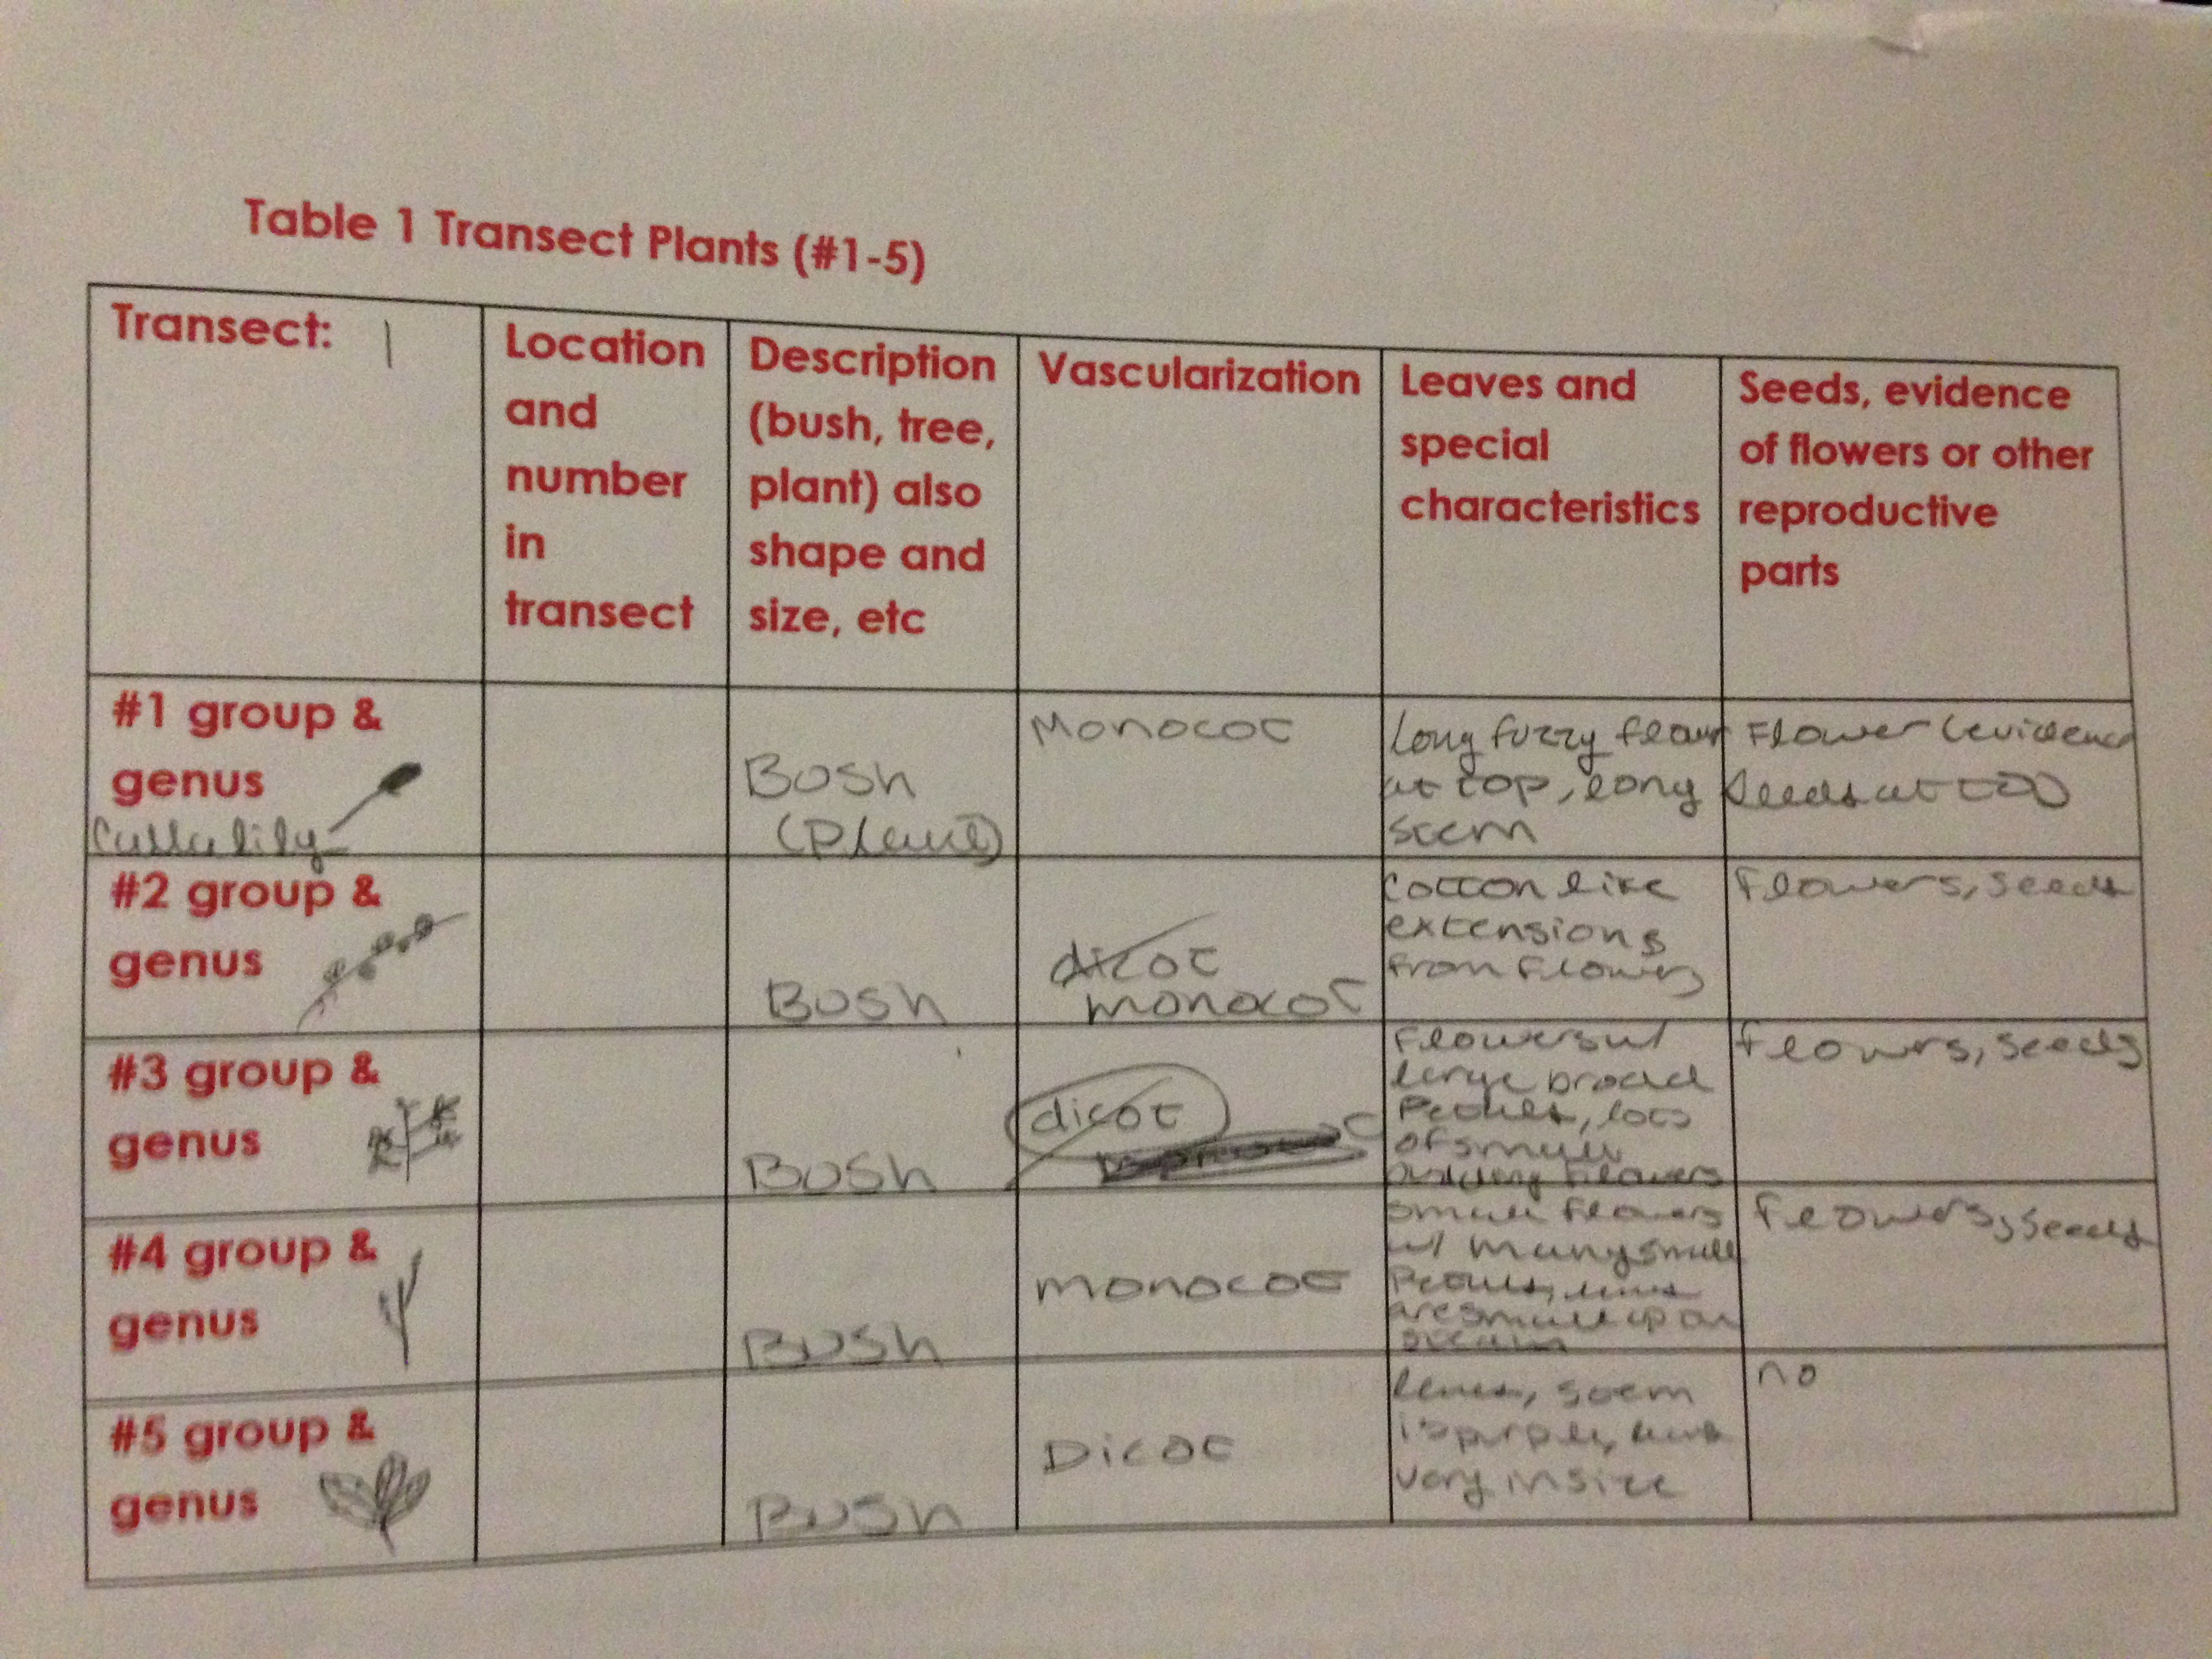 Table 1 Transect Plants (#1-5)
Transect: 1
Location
and
number
in
transect
Description
(bush, tree,
plant) also
shape and
size, etc
Vascularization
Leaves and
special
characteristics
Seeds, evidence
of flowers or other
reproductive
parts
#1 group &
genus
Calla lily
Bush
(Plant)
Monocot
Long fuzzy flower
at top, long
stem
Flower (evidence
Seeds at top)
#2 group &
genus
Bush
dicot
monocot
Cotton like
extensions
from flowers
Flowers, seeds
#3 group &
genus
Bush
dicot
monocot
Flowers w/
large broad
Petals, lots
of small
budding flowers
flowers, seeds
#4 group &
genus
Bush
monocot
small flowers
w/ many small
Petals,
are small up on
flowers, seeds
#5 group &
genus
Bush
Dicot
leaves, stem
is purple,
vary in size
no